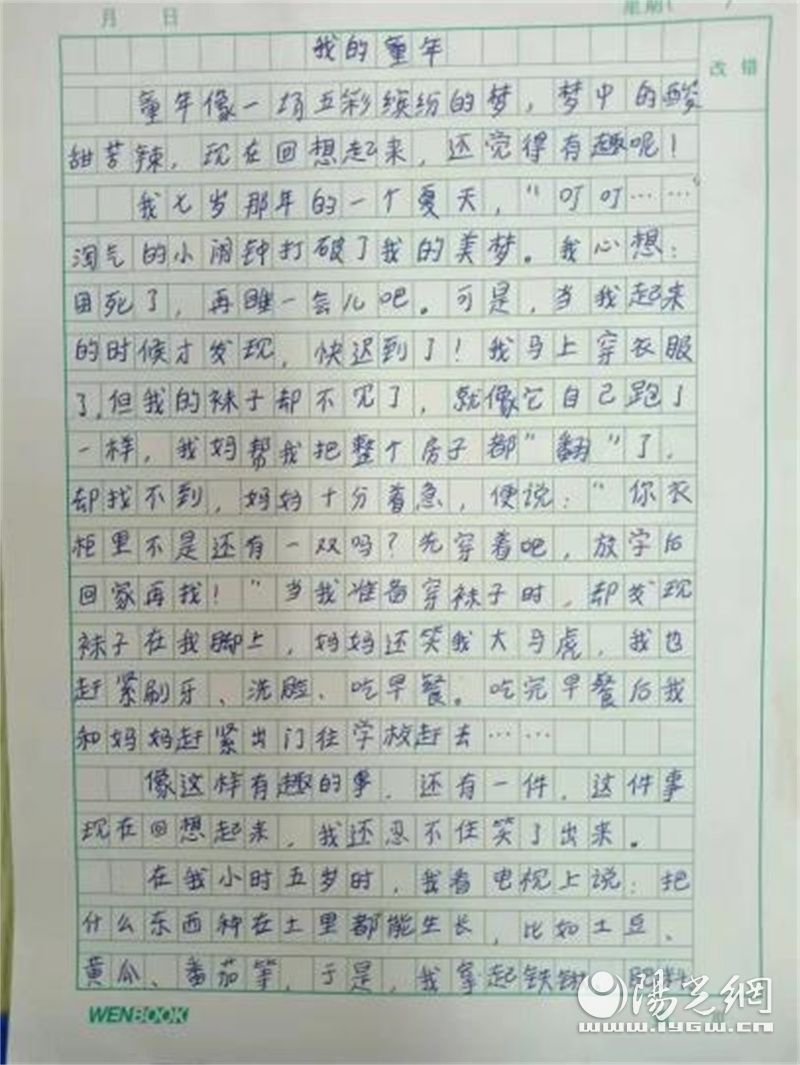 月 日
星期( )
改错
我的童年
童年像一场五彩缤纷的梦，梦中的酸
甜苦辣，现在回想起来，还觉得有趣呢！
我七岁那年的一个夏天，“叮叮……”
淘气的小闹钟打破了我的美梦。我心想：
困死了，再睡一会儿吧。可是，当我起来
的时候才发现，快迟到了！我马上穿衣服
了，但我的袜子却不见了，就像它自己跑了
一样，我妈帮我把整个房子都“翻”了，
却找不到，妈妈十分着急，便说：“你衣
柜里不是还有一双吗？先穿着吧，放学后
回家再找！”当我准备穿袜子时，却发现
袜子在我脚上，妈妈还笑我大马虎，我也
赶紧刷牙、洗脸、吃早餐。吃完早餐后我
和妈妈赶紧出门往学校赶去……
像这样有趣的事，还有一件，这件事
现在回想起来，我还忍不住笑了出来。
在我小时五岁时，我看电视上说：把
什么东西种在土里都能生长，比如土豆、
黄瓜、番茄等，于是，我拿起铁锹
WENBOOK
陽光網
www.iygw.cn